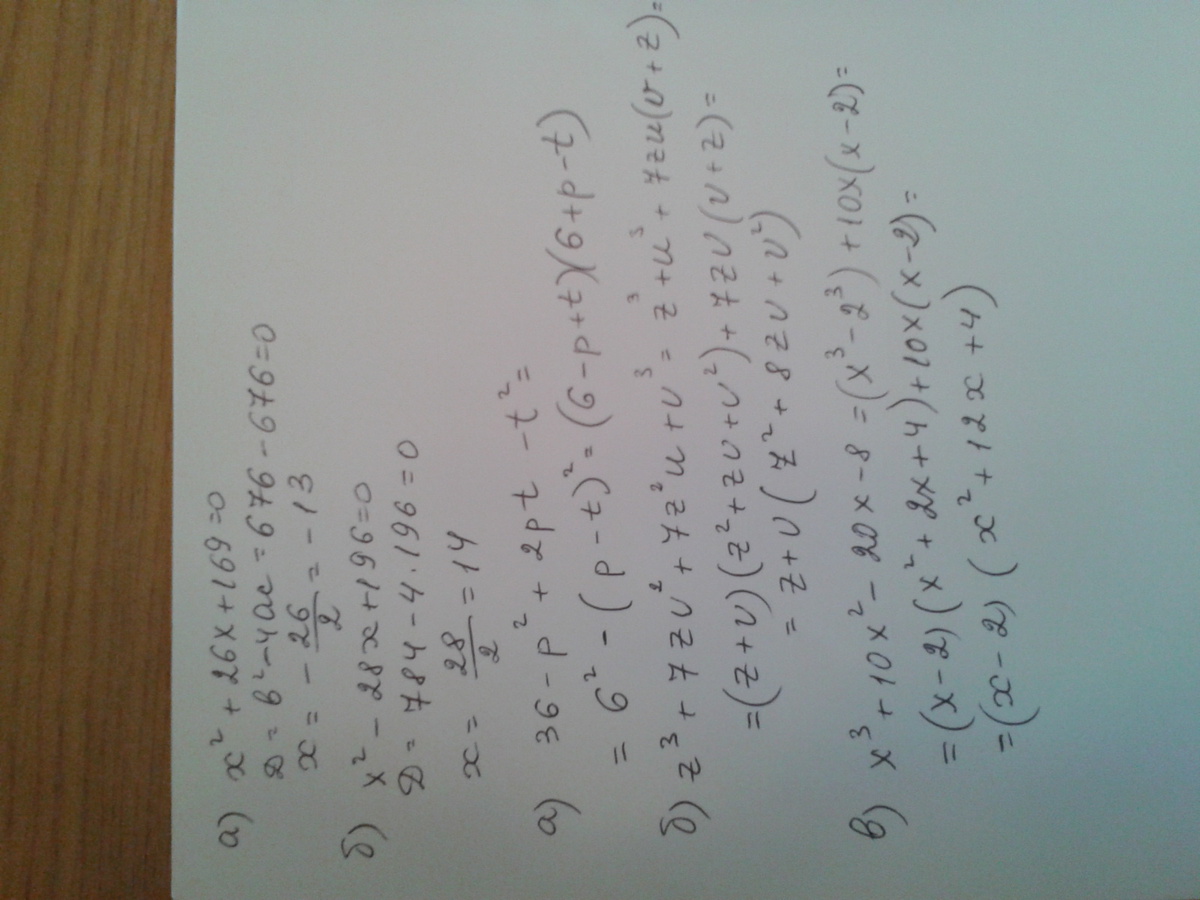 а) x² + 26x + 169 = 0
D = b² - 4ac = 676 - 676 = 0
x = - 26/2 = - 13
б) x² - 28x + 196 = 0
D = 784 - 4 · 196 = 0
x = 28/2 = 14
а) 36 - p² + 2pt - t² =
= 6² - (p - t)² = (6 - p + t)(6 + p - t)
б) z³ + 7zv² + 7z²u + v³ = z³ + u³ + 7zu(v + z) =
= (z + v)(z² + zv + v²) + 7zv(v + z) =
= z + v (z² + 8zv + v²)
в) x³ + 10x² - 20x - 8 = (x³ - 2³) + 10x(x - 2) =
= (x - 2)(x² + 2x + 4) + 10x(x - 2) =
= (x - 2) (x² + 12x + 4)